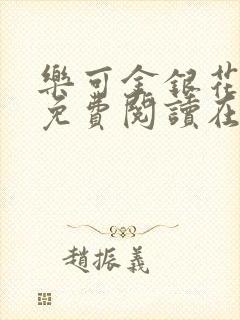 樂可金銀花
免費閱讀在
趙振義